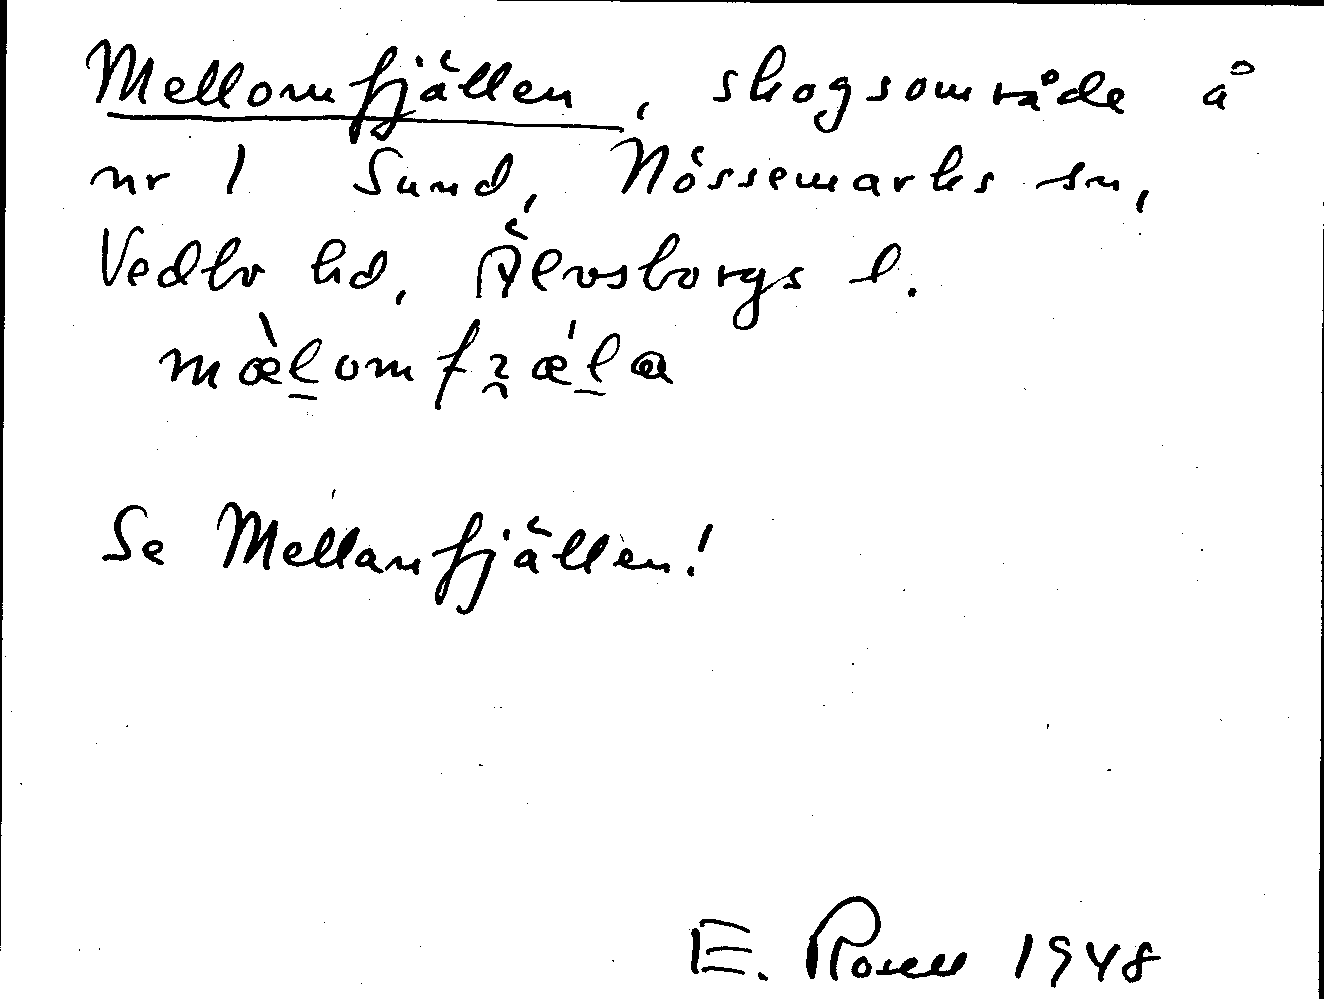 Mellomfjällen, skogsområde å
nr 1 Sund, Nössemarks sn,
Vedbo hd, Älvsborgs l.
mæ̀l̲omfʒǽl̲a
Se Mellanfjällen!
E. Rosell 1948